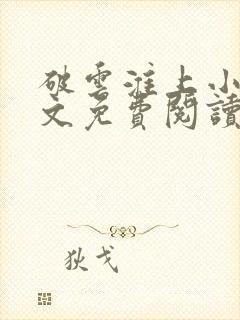 破雲淮上小
文免費閱讀
狄戈